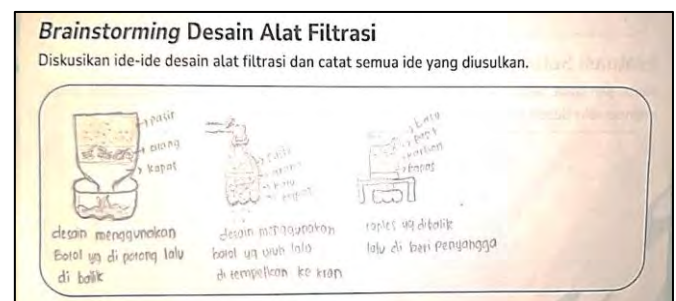 Brainstorming Desain Alat Filtrasi
Diskusikan ide-ide desain alat filtrasi dan catat semua ide yang diusulkan.
pasir
arang
kapas
desain menggunakan
Botol yg di potong lalu
di balik
pasir
arang
desain menggunakan
botol yg utuh lalu
di tempelkan ke kran
batu
pasir
kapas
toples yg dibalik
lalu di beri penyangga